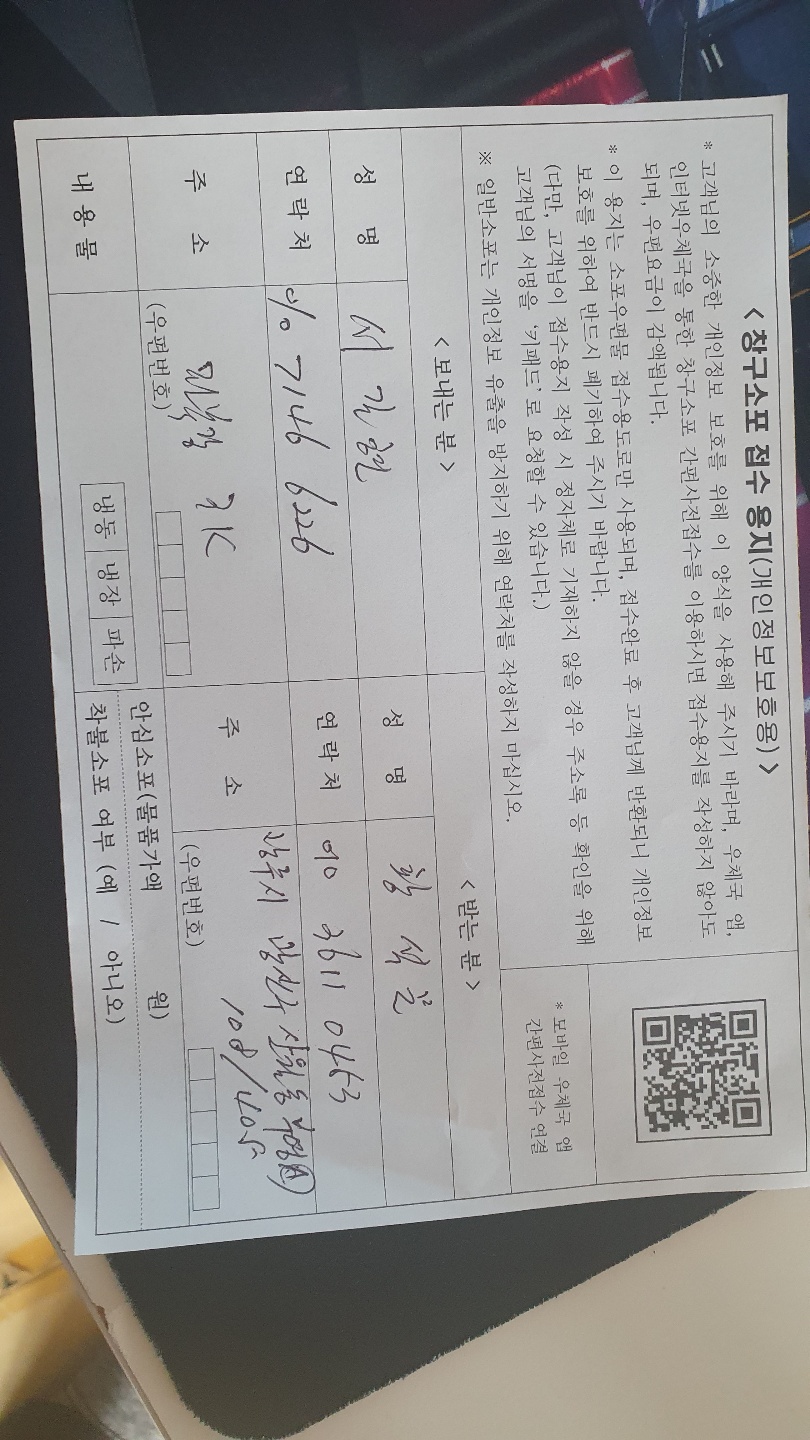 <창구소포 접수 용지(개인정보보호용)>
* 고객님의 소중한 개인정보 보호를 위해 이 양식을 사용해 주시기 바라며, 우체국 앱,
인터넷우체국을 통한 창구소포 간편사전접수를 이용하시면 접수용지를 작성하지 않아도
되며, 우편요금이 감액됩니다.
* 이 용지는 소포우편물 접수용도로만 사용되며, 접수완료 후 고객님께 반환되니 개인정보
보호를 위하여 반드시 폐기하여 주시기 바랍니다.
(다만, 고객님이 접수용지 작성 시 정자체로 기재하지 않을 경우 주소록 등 확인을 위해
고객님의 서명을 '키패드'로 요청할 수 있습니다.)
※ 일반소포는 개인정보 유출을 방지하기 위해 연락처를 작성하지 마십시오.
* 모바일 우체국 앱
간편사전접수 연결
<보내는 분>
성 명 서
연 락 처 010 7146 6226
주 소
(우편번호)
<받는 분>
성 명 황
연 락 처 010 3611 0453
주 소 광산구
108/405
(우편번호)
내 용 물
냉동 냉장 파손
안심소포(물품가액 원)
착불소포 여부 (예 / 아니오)